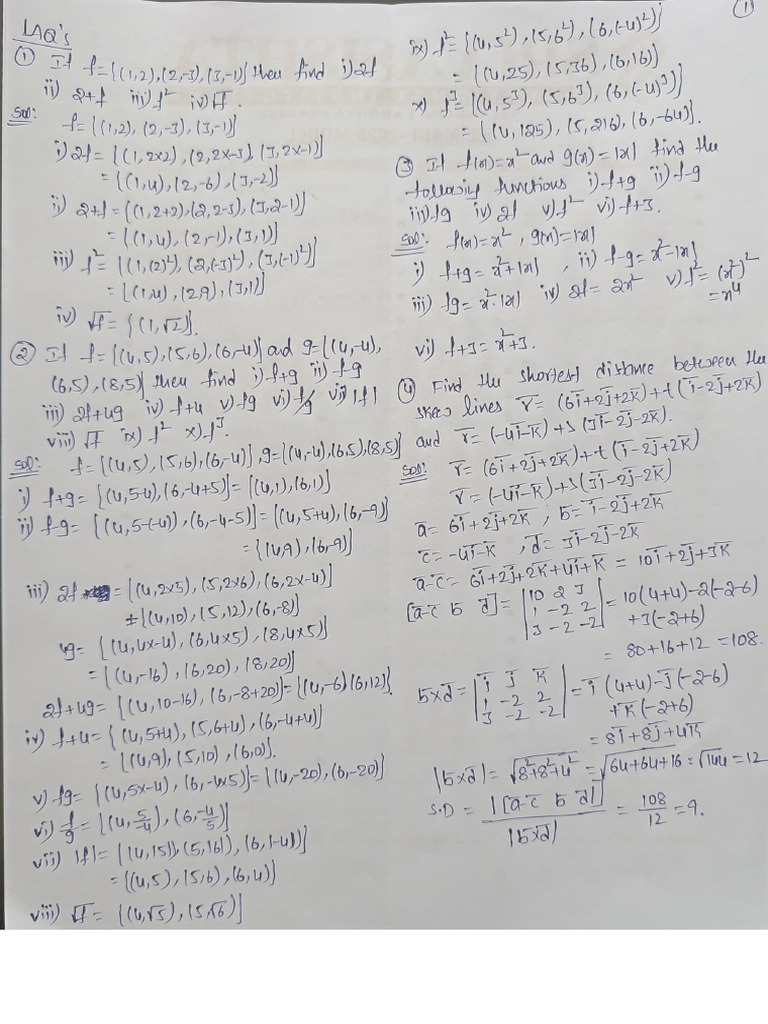 LAQ's
① If f={(1,2),(2,-3),(3,-1)} then find i) 2f
ii) 2+f iii) f² iv) √f.
Sol: f={(1,2), (2,-3), (3,-1)}
i) 2f = {(1,2x2), (2,2x-3), (3,2x-1)}
= {(1,4),(2,-6),(3,-2)}
ii) 2+f={(1,2+2),(2,2-3),(3,2-1)}
= {(1,4),(2,-1),(3,1)}
iii) f² = {(1,(2)²),(2,(-3)²),(3,(-1)²)}
= {(1,4),(2,9),(3,1)}
iv) √f = {(1,√2)}.
② If f={(4,5),(5,6),(6,-4)} and g={(4,-4),
(6,5),(8,5)} then find i) f+g ii) f-g
iii) 2f+4g iv) f+4 v) fg vi) f/g vii) |f|
viii) √f ix) f² x) f³.
Sol: f={(4,5),(5,6),(6,-4)}, g={(4,-4),(6,5),(8,5)}
i) f+g = {(4,5-4),(6,-4+5)} = {(4,1),(6,1)}
ii) f-g = {(4,5-(-4)),(6,-4-5)} = {(4,5+4),(6,-9)}
= {(4,9),(6,-9)}
iii) 2f = {(4,2x5),(5,2x6),(6,2x-4)}
= {(4,10),(5,12),(6,-8)}
4g = {(4,4x-4),(6,4x5),(8,4x5)}
= {(4,-16),(6,20),(8,20)}
2f+4g = {(4,10-16),(6,-8+20)} = {(4,-6),(6,12)}.
iv) f+4 = {(4,5+4),(5,6+4),(6,-4+4)}
= {(4,9),(5,10),(6,0)}.
v) fg = {(4,5x-4),(6,-4x5)} = {(4,-20),(6,-20)}
vi) f/g = {(4,5/-4),(6,-4/5)}
vii) |f| = {(4,|5|),(5,|6|),(6,|-4|)}
= {(4,5),(5,6),(6,4)}
viii) √f = {(4,√5),(5,√6)}
①
ix) f² = {(4,5²),(5,6²),(6,(-4)²)}
= {(4,25),(5,36),(6,16)}
x) f³ = {(4,5³),(5,6³),(6,(-4)³)}
= {(4,125),(5,216),(6,-64)}.
③ If f(x)=x² and g(x)=|x| find the
following functions i) f+g ii) f-g
iii) fg iv) 2f v) f² vi) f+3.
Sol: f(x)=x², g(x)=|x|
i) f+g = x²+|x|, ii) f-g=x²-|x|
iii) fg = x²·|x| iv) 2f = 2x² v) f² = (x²)²
= x⁴
vi) f+3 = x²+3.
④ Find the shortest distance between the
skew lines r̄ = (6ī+2j̄+2k̄)+t(ī-2j̄+2k̄)
and r̄ = (-4ī-k̄)+s(3ī-2j̄-2k̄).
Sol: r̄ = (6ī+2j̄+2k̄)+t(ī-2j̄+2k̄)
r̄ = (-4ī-k̄)+s(3ī-2j̄-2k̄)
ā = 6ī+2j̄+2k̄ ; b̄ = ī-2j̄+2k̄
c̄ = -4ī-k̄ , d̄ = 3ī-2j̄-2k̄
ā-c̄ = 6ī+2j̄+2k̄+4ī+k̄ = 10ī+2j̄+3k̄
[ā-c̄ b̄ d̄] = |10 2 3| = 10(4+4)-2(-2-6)
|1 -2 2| +3(-2+6)
|3 -2 -2| = 80+16+12 = 108.
b̄xd̄ = |ī j̄ k̄| = ī(4+4)-j̄(-2-6)
|1 -2 2| +k̄(-2+6)
|3 -2 -2| = 8ī+8j̄+4k̄
|b̄xd̄| = √8²+8²+4² = √64+64+16 = √144 = 12
S.D = |[ā-c̄ b̄ d̄]| / |b̄xd̄| = 108/12 = 9.